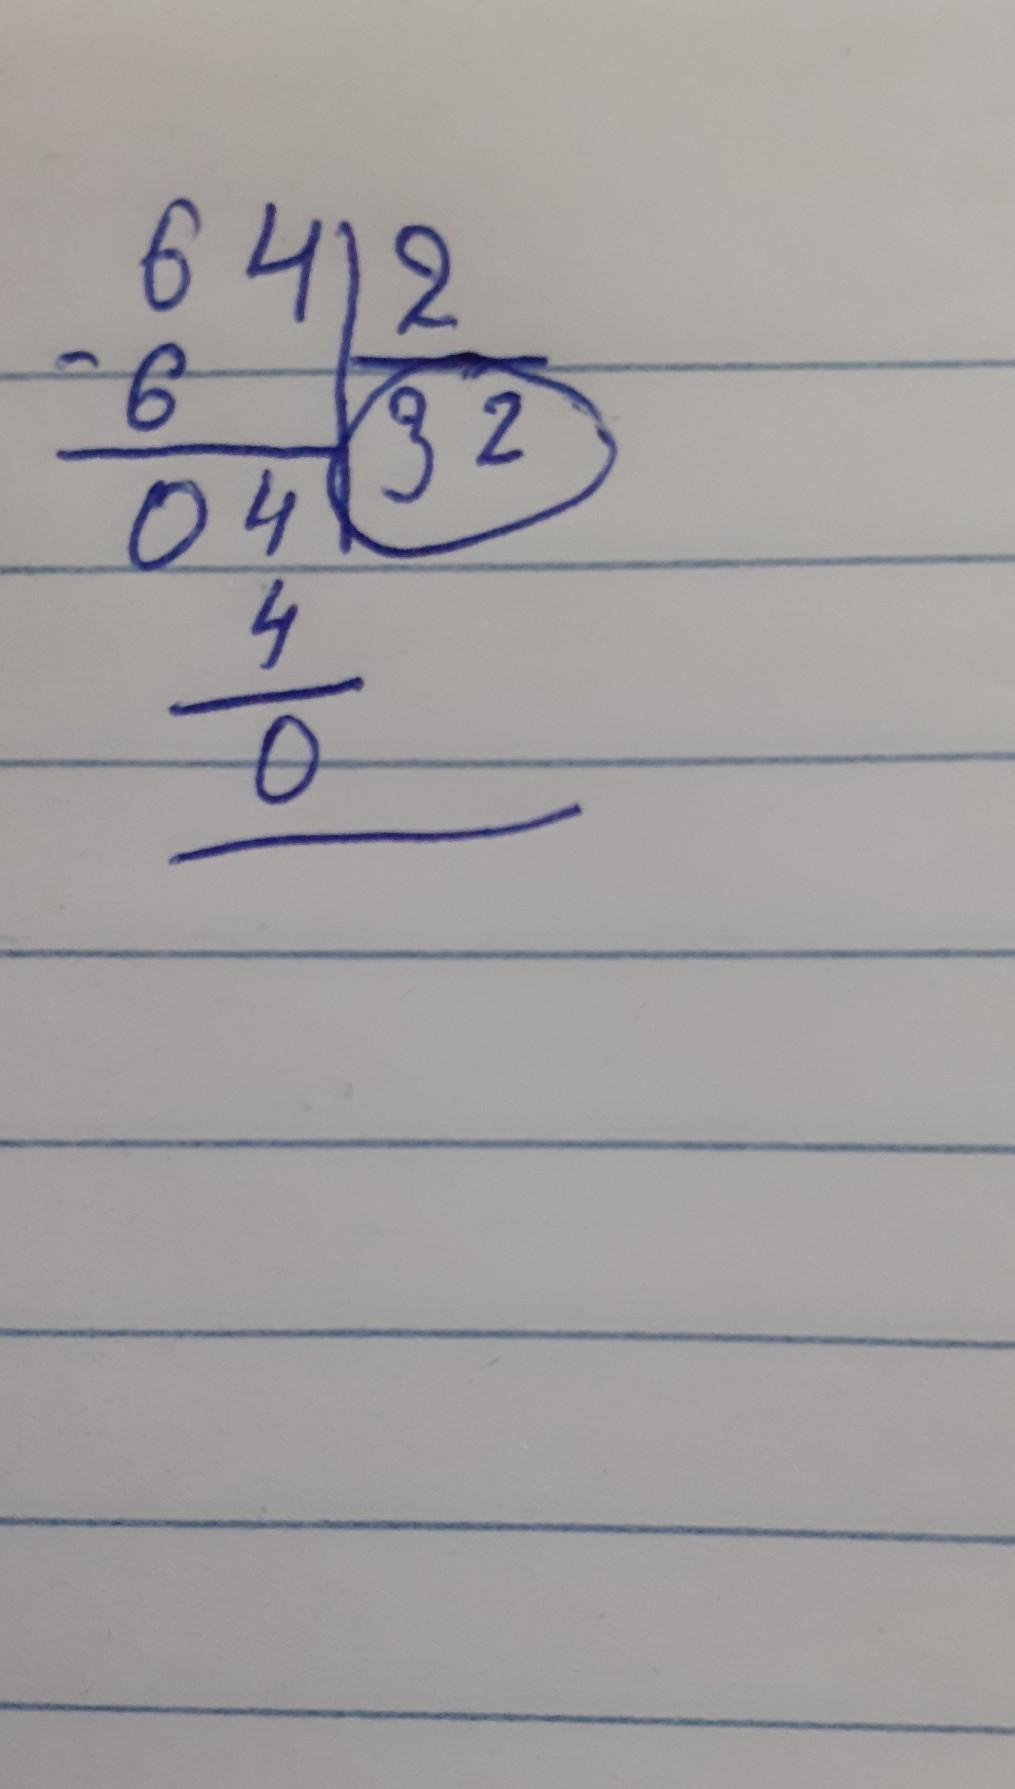 64 2
- 6
32
04
4
0